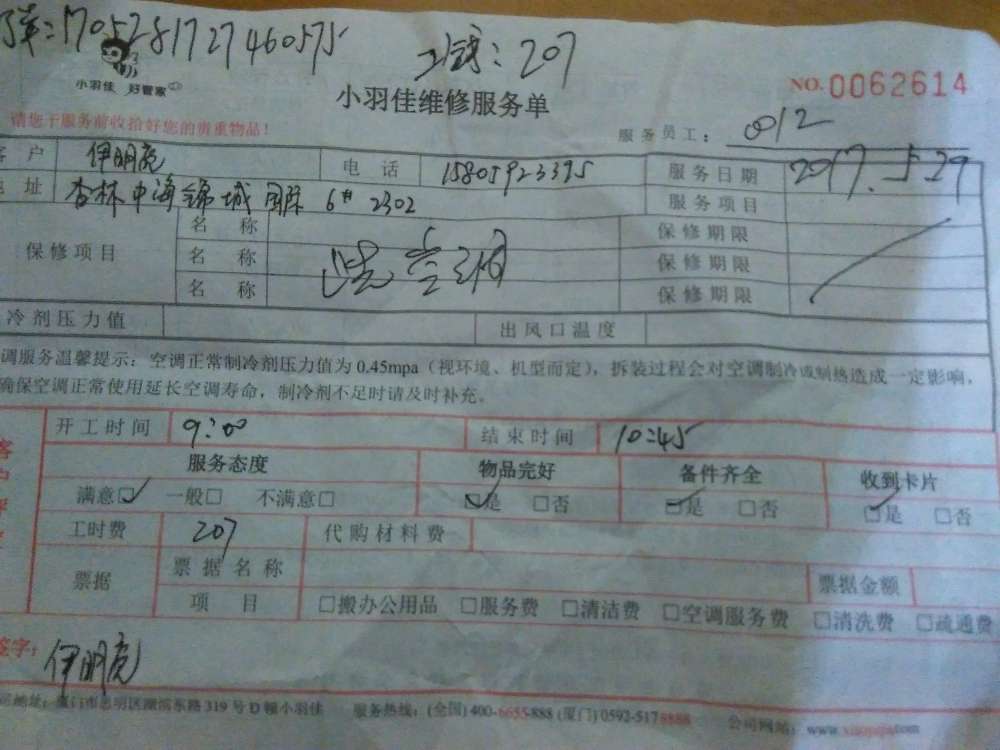 单:1705281727460575
工钱:207
小羽佳 好管家
小羽佳维修服务单
NO.0062614
请您于服务前收拾好您的贵重物品!
服务员工: 0012
客户 伊明亮 电话 15805923395 服务日期 2017.5.29
地址 杏林中海锦城国际 6# 2302 服务项目
保修项目 名称 保修期限
名称 洗空调 保修期限
名称 保修期限
冷剂压力值 出风口温度
调服务温馨提示:空调正常制冷剂压力值为0.45mpa(视环境、机型而定),拆装过程会对空调制冷或制热造成一定影响,
确保空调正常使用延长空调寿命,制冷剂不足时请及时补充。
开工时间 9:00 结束时间 10:45
服务态度 物品完好 备件齐全 收到卡片
满意☑ 一般□ 不满意□ ☑是 □否 ☑是 □否 ☑是 □否
工时费 207 代购材料费
票据 票据名称 票据金额
项目 □搬办公用品 □服务费 □清洁费 □空调服务费 □清洗费 □疏通费
签字: 伊明亮
地址:厦门市思明区湖滨东路319号D幢小羽佳 服务热线:(全国)400-6655-888 (厦门)0592-5178888 公司网站:www.xiaoyujia.com